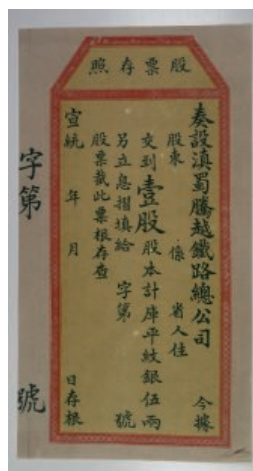 股票存照
奏設滇蜀騰越鐵路總公司 今據
股東 係 省人住
交到壹股股本計庫平紋銀伍兩
另立息摺填給 字第 號
股票截此票根存查
宣統 年 月 日存根
字第 號